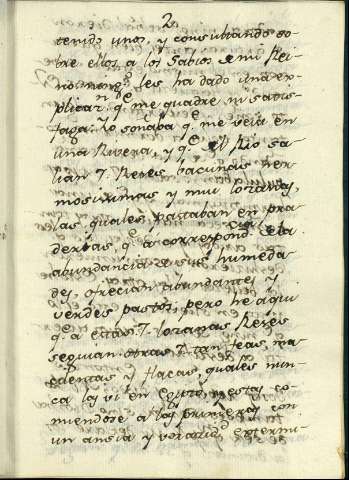 2
tenido unos, y consultando so-
bre ellos a los Sabios de mi Rei-
no, ningº les ha dado una ex-
plicon qe me quadre, ni satis-
faga: Yo soñaba qe me veia en
una Rivera, y qe del Rio sa-
lian 7. Reses bacunas her-
mosisimas y mui lozanas,
las quales pastaban en pra-
derias qe a correspondª de la
abundancia de sus humeda-
des, ofrecian abundantes y
verdes pastos; pero he aqui
qe a estas 7. lozanas Reses
seguian otras 7. tan feas, ma-
cilentas y flacas, quales nun-
ca las vi en Egipto, y estas co-
miendose a las primeras con
un ansia y voracidd extermi-